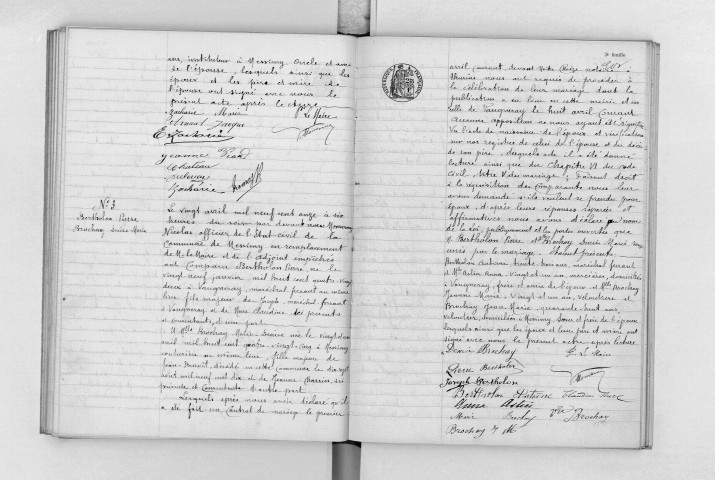 ans, instituteur à Messimy Oncle et ami
de l'épouse, lesquels ainsi que les
époux et les père et mère de
l'épouse ont signé avec nous le
présent acte après lecture
Zacharie Marie P. Le Maire
E Zacharie
Zacharie
N° 3
Bertholon Pierre
Brochay Louise Marie
Le vingt avril mil neuf cent onze à six
heures du soir par devant nous
Nicolas officier de l'État civil de la
Commune de Messimy en remplacement
de M. le Maire et de l'adjoint empêchés
ont comparu Bertholon Pierre, né le
vingt neuf janvier mil huit cent quatre vingt
deux à Vaugneray, maréchal ferrant au même
lieu fils majeur de Joseph, maréchal ferrant
à Vaugneray et de présents
et consentants, d'une part
Et Mlle Brochay Marie Louise née le vingt
avril mil huit cent quatre vingt cinq à Messimy
couturière au même lieu, fille majeure de
Jean Benoît, décédé en cette commune le dix sept
août mil neuf cent dix et de Jeanne ici
présente et consentante d'autre part
Lesquels après nous avoir déclaré qu'il
a été fait un contrat de mariage le premier
3e feuille
avril courant devant Maître notaire à
nous ont requis de procéder à
la célébration de leur mariage dont la
publication a eu lieu en cette mairie et en
celle de Vaugneray le huit avril courant
Aucune opposition ne nous ayant été signifiée
Vu l'acte de naissance de l'époux et vérification
sur nos registres de celui de l'épouse et du décès
de son père, desquels acte il a été donné
lecture ainsi que du Chapitre VI du code
civil, titre V du mariage; Faisant droit
à la réquisition des comparants nous leur
avons demandé s'ils veulent se prendre pour
époux; d'après leurs réponses séparées et
affirmatives nous avons déclaré au nom
de la loi, publiquement et les portes ouvertes que
M. Bertholon Pierre et Mlle Brochay Louise Marie sont
unis par le mariage. Étaient présents:
Bertholon Antoine, trente ans, maréchal ferrant
et Mlle Anna, vingt et un ans, mercière, domiciliés
à Vaugneray, frère et amie de l'époux et Mlle Brochay
Jeanne Marie, vingt et un ans, veloutière et
Brochay Jeanne Marie, quarante huit ans,
domiciliés à Messimy, Soeur et de l'épouse
lesquels ainsi que les époux et leur père et mère ont
signé avec nous le présent acte après lecture
Brochay P. Le Maire
Pierre Bertholon
Joseph Bertholon
Bertholon Antoine Claudine
Anna
Marie Brochay Vve Brochay
Brochay J M